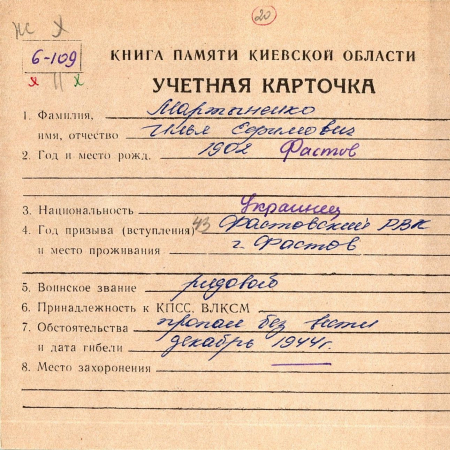 ЖС Х
20
6-109
х II х
КНИГА ПАМЯТИ КИЕВСКОЙ ОБЛАСТИ
УЧЕТНАЯ КАРТОЧКА
1. Фамилия, Мартыненко
имя, отчество Илья Ефимович
2. Год и место рожд. 1902 Фастов
3. Национальность Украинец
4. Год призыва (вступления) 43 Фастовский РВК
и место проживания г. Фастов
5. Воинское звание рядовой
6. Принадлежность к КПСС, ВЛКСМ
7. Обстоятельства пропал без вести
и дата гибели декабрь 1944г.
8. Место захоронения